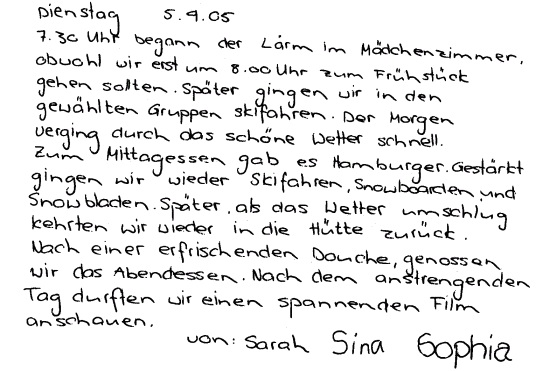 Dienstag 5.4.05
7.30 Uhr begann der Lärm im Mädchenzimmer,
obwohl wir erst um 8.00 Uhr zum Frühstück
gehen sollten. Später gingen wir in den
gewählten Gruppen skifahren. Der Morgen
verging durch das schöne Wetter schnell.
Zum Mittagessen gab es Hamburger. Gestärkt
gingen wir wieder Skifahren, Snowboarden und
Snowbladen. Später, als das Wetter umschlug
kehrten wir wieder in die Hütte zurück.
Nach einer erfrischenden Douche, genossen
wir das Abendessen. Nach dem anstrengenden
Tag durften wir einen spannenden Film
anschauen.
von: Sarah Sina Sophia